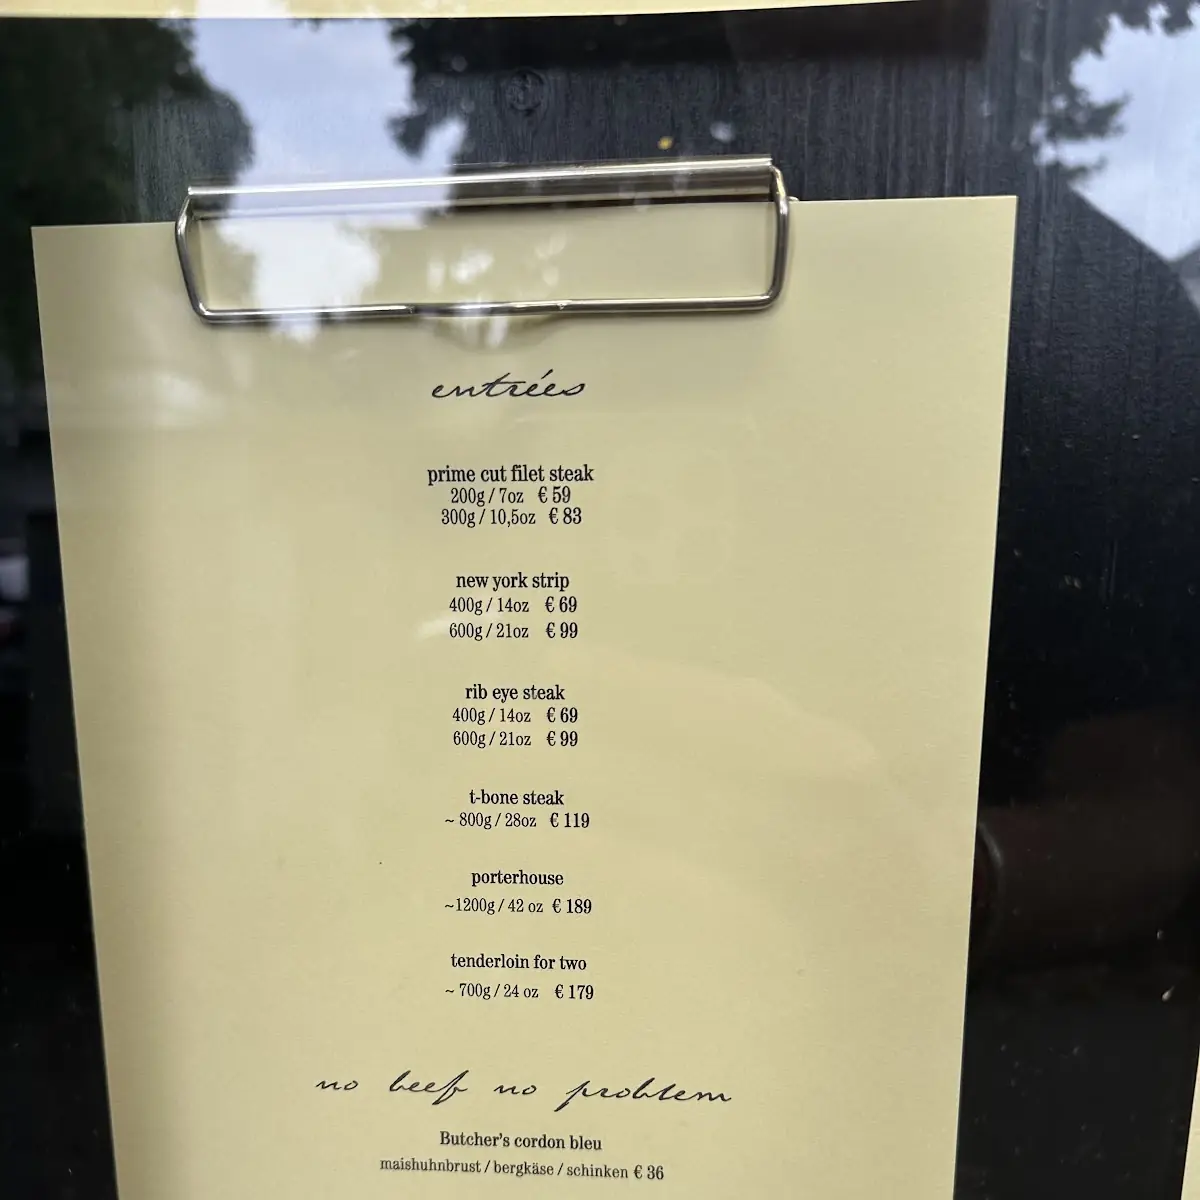 entrées
prime cut filet steak
200g / 7oz € 59
300g / 10,5oz € 83
new york strip
400g / 14oz € 69
600g / 21oz € 99
rib eye steak
400g / 14oz € 69
600g / 21oz € 99
t-bone steak
~ 800g / 28oz € 119
porterhouse
~1200g / 42 oz € 189
tenderloin for two
~ 700g / 24 oz € 179
no beef no problem
Butcher's cordon bleu
maishuhnbrust / bergkäse / schinken € 36